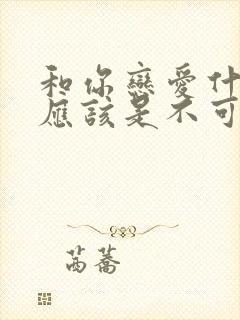 和你戀愛什
應該是不可
芮蕎